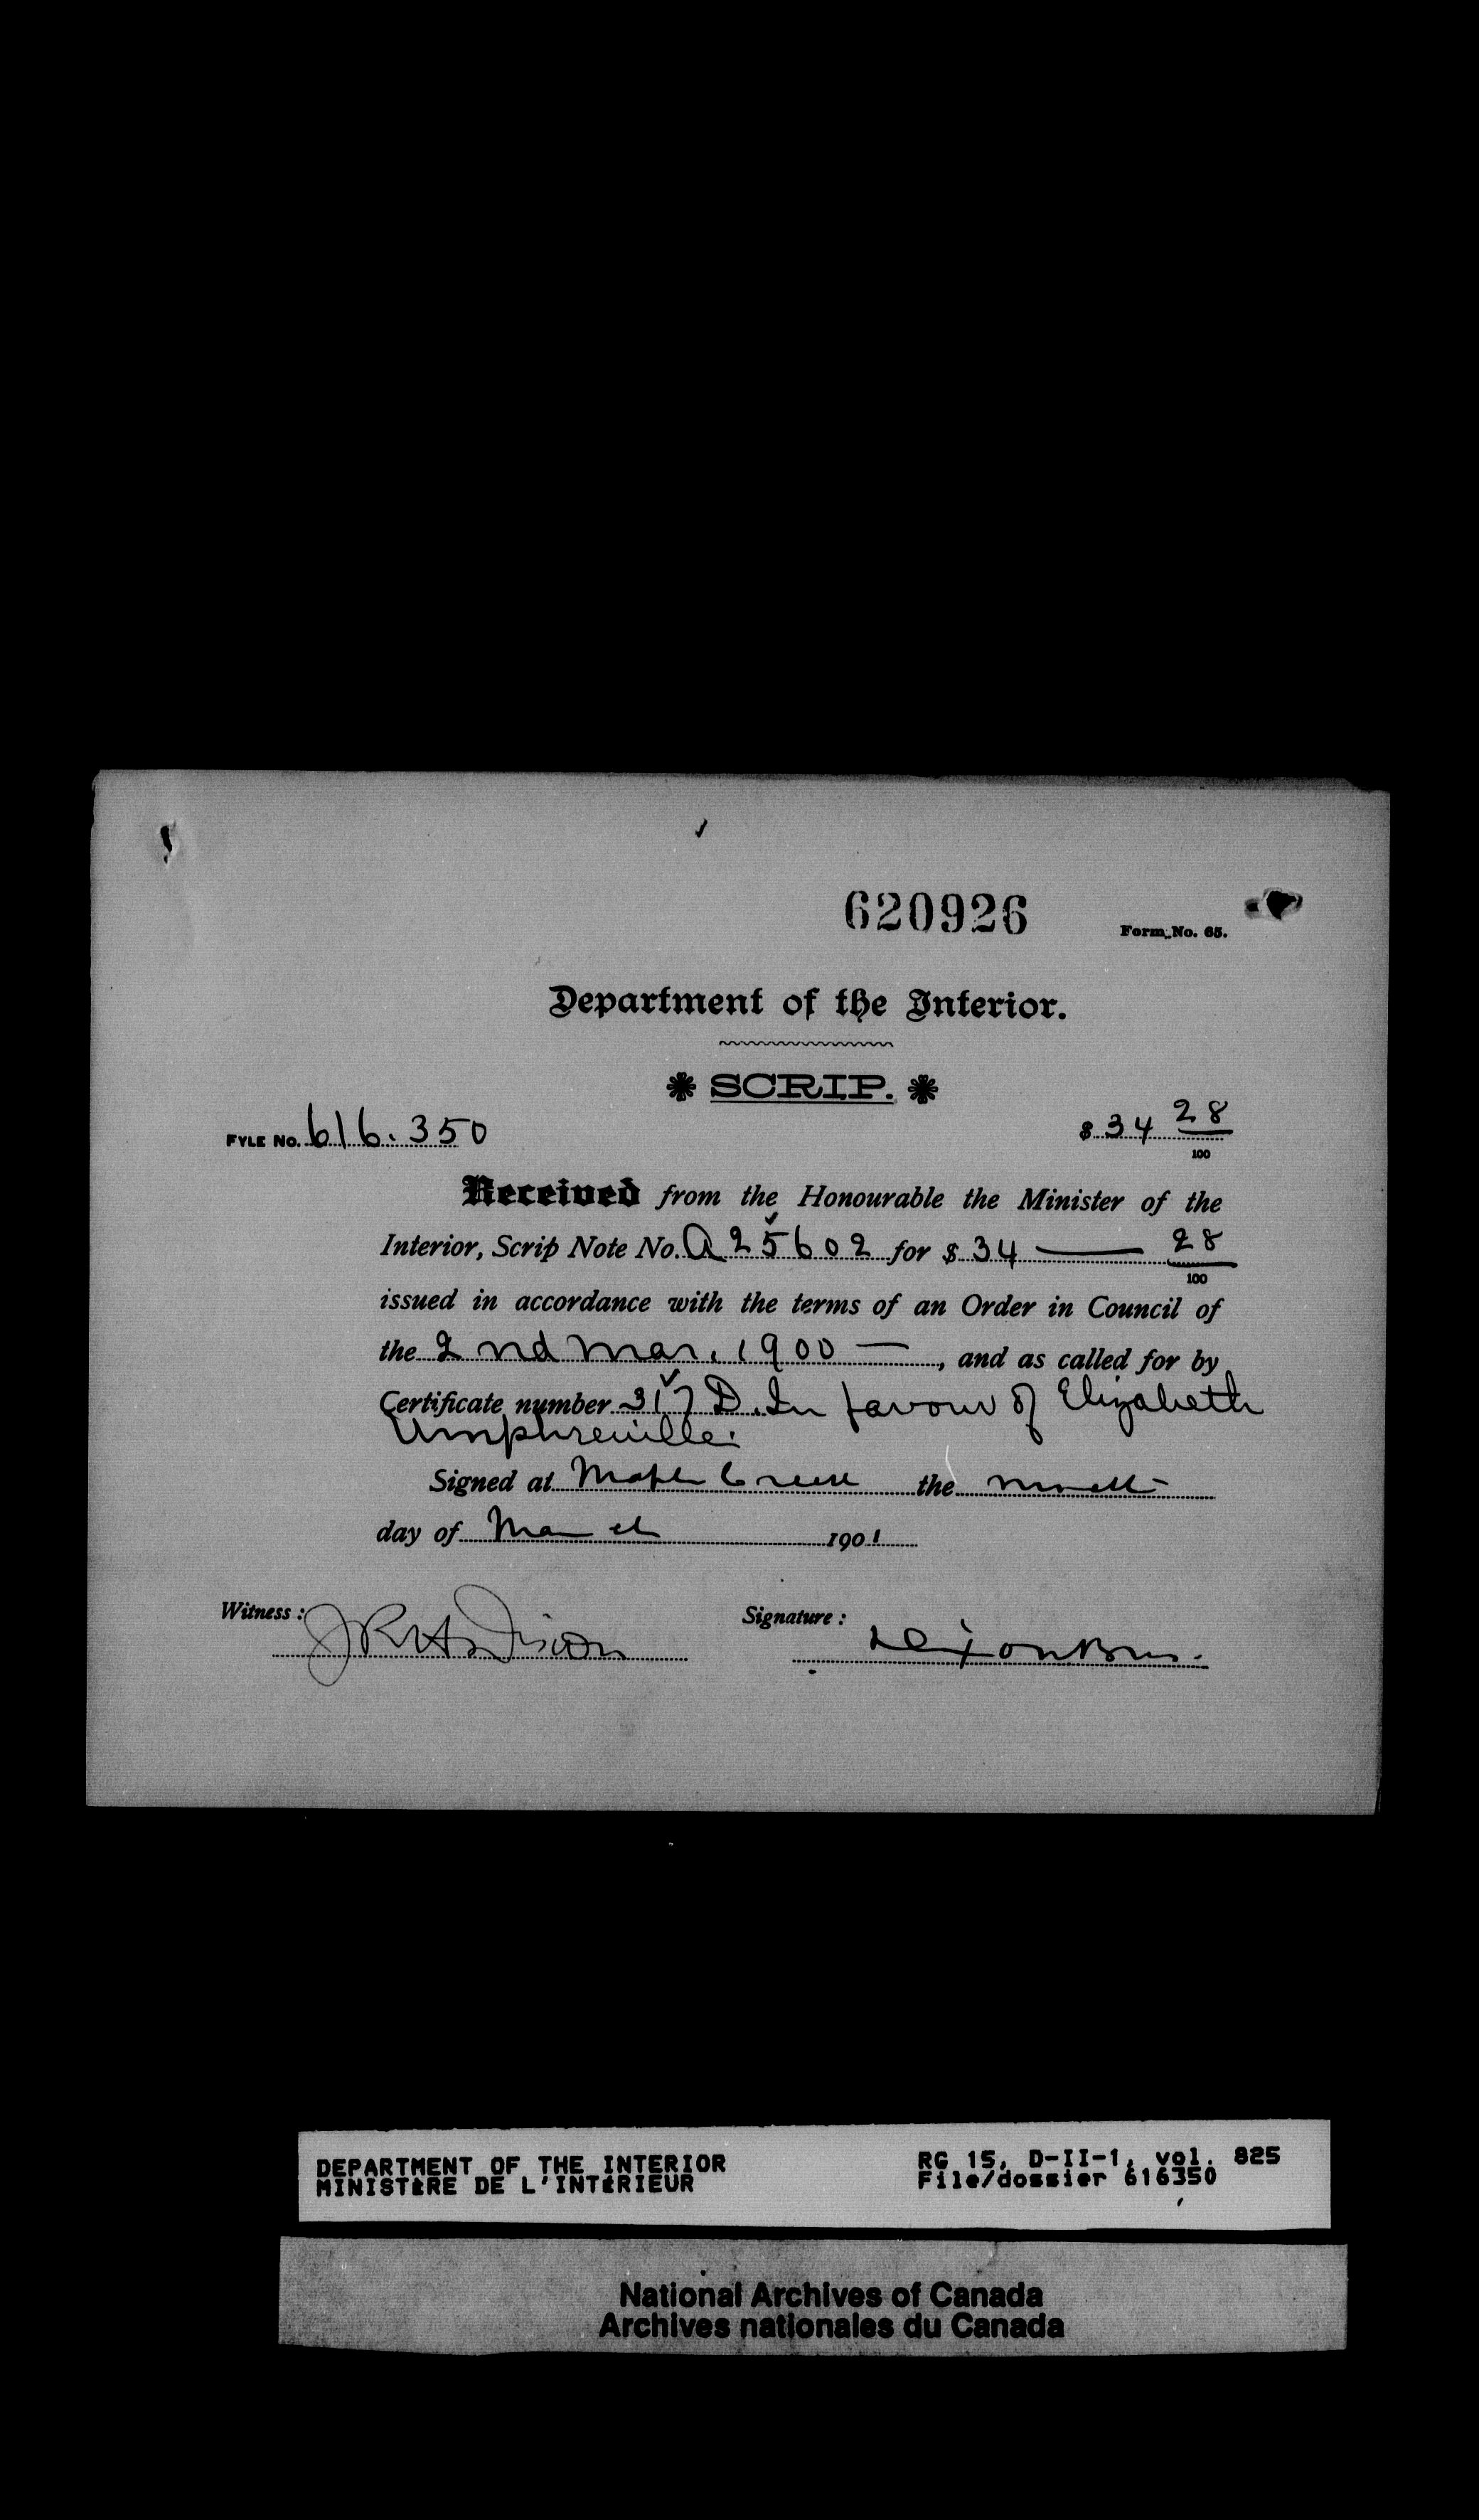 620926
Form No. 65.
Department of the Interior.
SCRIP.
FYLE NO. 616.350
$ 34 28/100
Received from the Honourable the Minister of the
Interior, Scrip Note No. A 25602 for $ 34 — 28/100
issued in accordance with the terms of an Order in Council of
the 2nd Mar. 1900 —, and as called for by
Certificate number 317 D. In favour of Elizabeth
Umphreville.
Signed at Maple Creek the
day of March 1901
Witness :
Signature : Dixon Bros.
DEPARTMENT OF THE INTERIOR
MINISTÈRE DE L'INTÉRIEUR
RG 15, D-II-1, vol. 825
File/dossier 616350
National Archives of Canada
Archives nationales du Canada